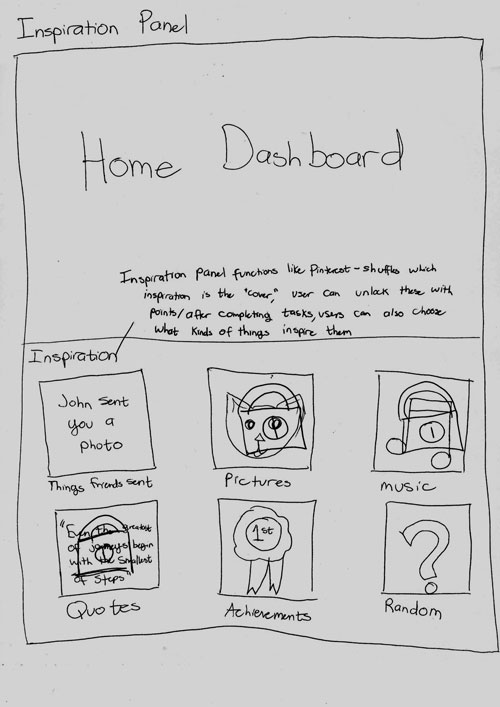 Inspiration Panel
Home Dashboard
Inspiration Panel functions like Pinterest - shuffles which
inspiration is the "cover," user can unlock these with
points/after completing tasks, users can also choose
what kinds of things inspire them
Inspiration
John sent
you a
photo
Things friends sent
Pictures
music
"Even the greatest
of journeys begin
with the smallest
of steps"
Quotes
1st
Achievements
?
Random